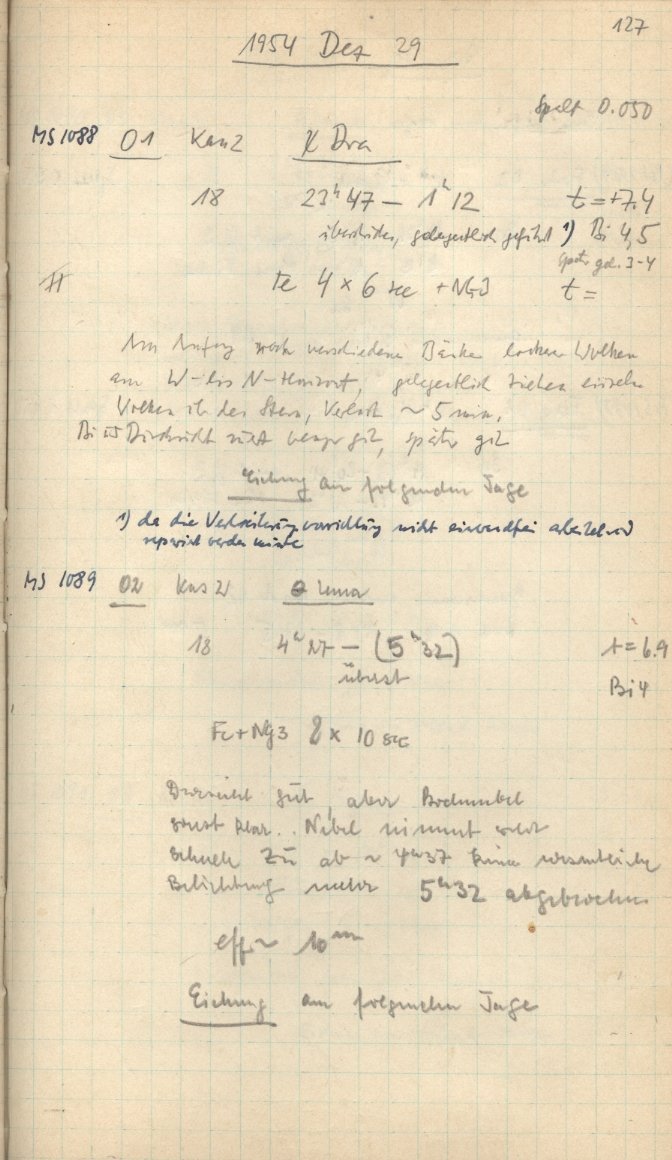 127
1954 Dez 29
Spalt 0.050
MS 1088 01 Kas 2 χ Dra
18 23ʰ47 – 1ʰ12 t=+7.4
gelegentlich geführt 1) Bi 4,5
später gel. 3-4
Fe 4 × 6 sec + NG3 t=
Am Anfang noch verschiedene Bänke lockere Wolken
am W- bis N-Horizont, gelegentlich ziehen einzelne
Wolken üb den Stern, Verlust ~ 5 min.
Bi u Durchsicht nicht gut, später gut
Eichung am folgenden Tage
1) da die Verbreiterungsvorrichtung nicht einwandfrei
repariert werden müsste
MS 1089 02 Kas 2 θ Uma
18 4ʰ27 – (5ʰ32) t=6.9
überst Bi 4
Fe+NG3 8 × 10 sec
Durchsicht gut, aber Bodennebel
sonst klar.. Nebel nimmt sehr
schnell zu ab ~ 4ʰ37 keine wesentliche
Belichtung mehr 5ʰ32 abgebrochen
eff ~ 10ᵐⁱⁿ
Eichung am folgenden Tage